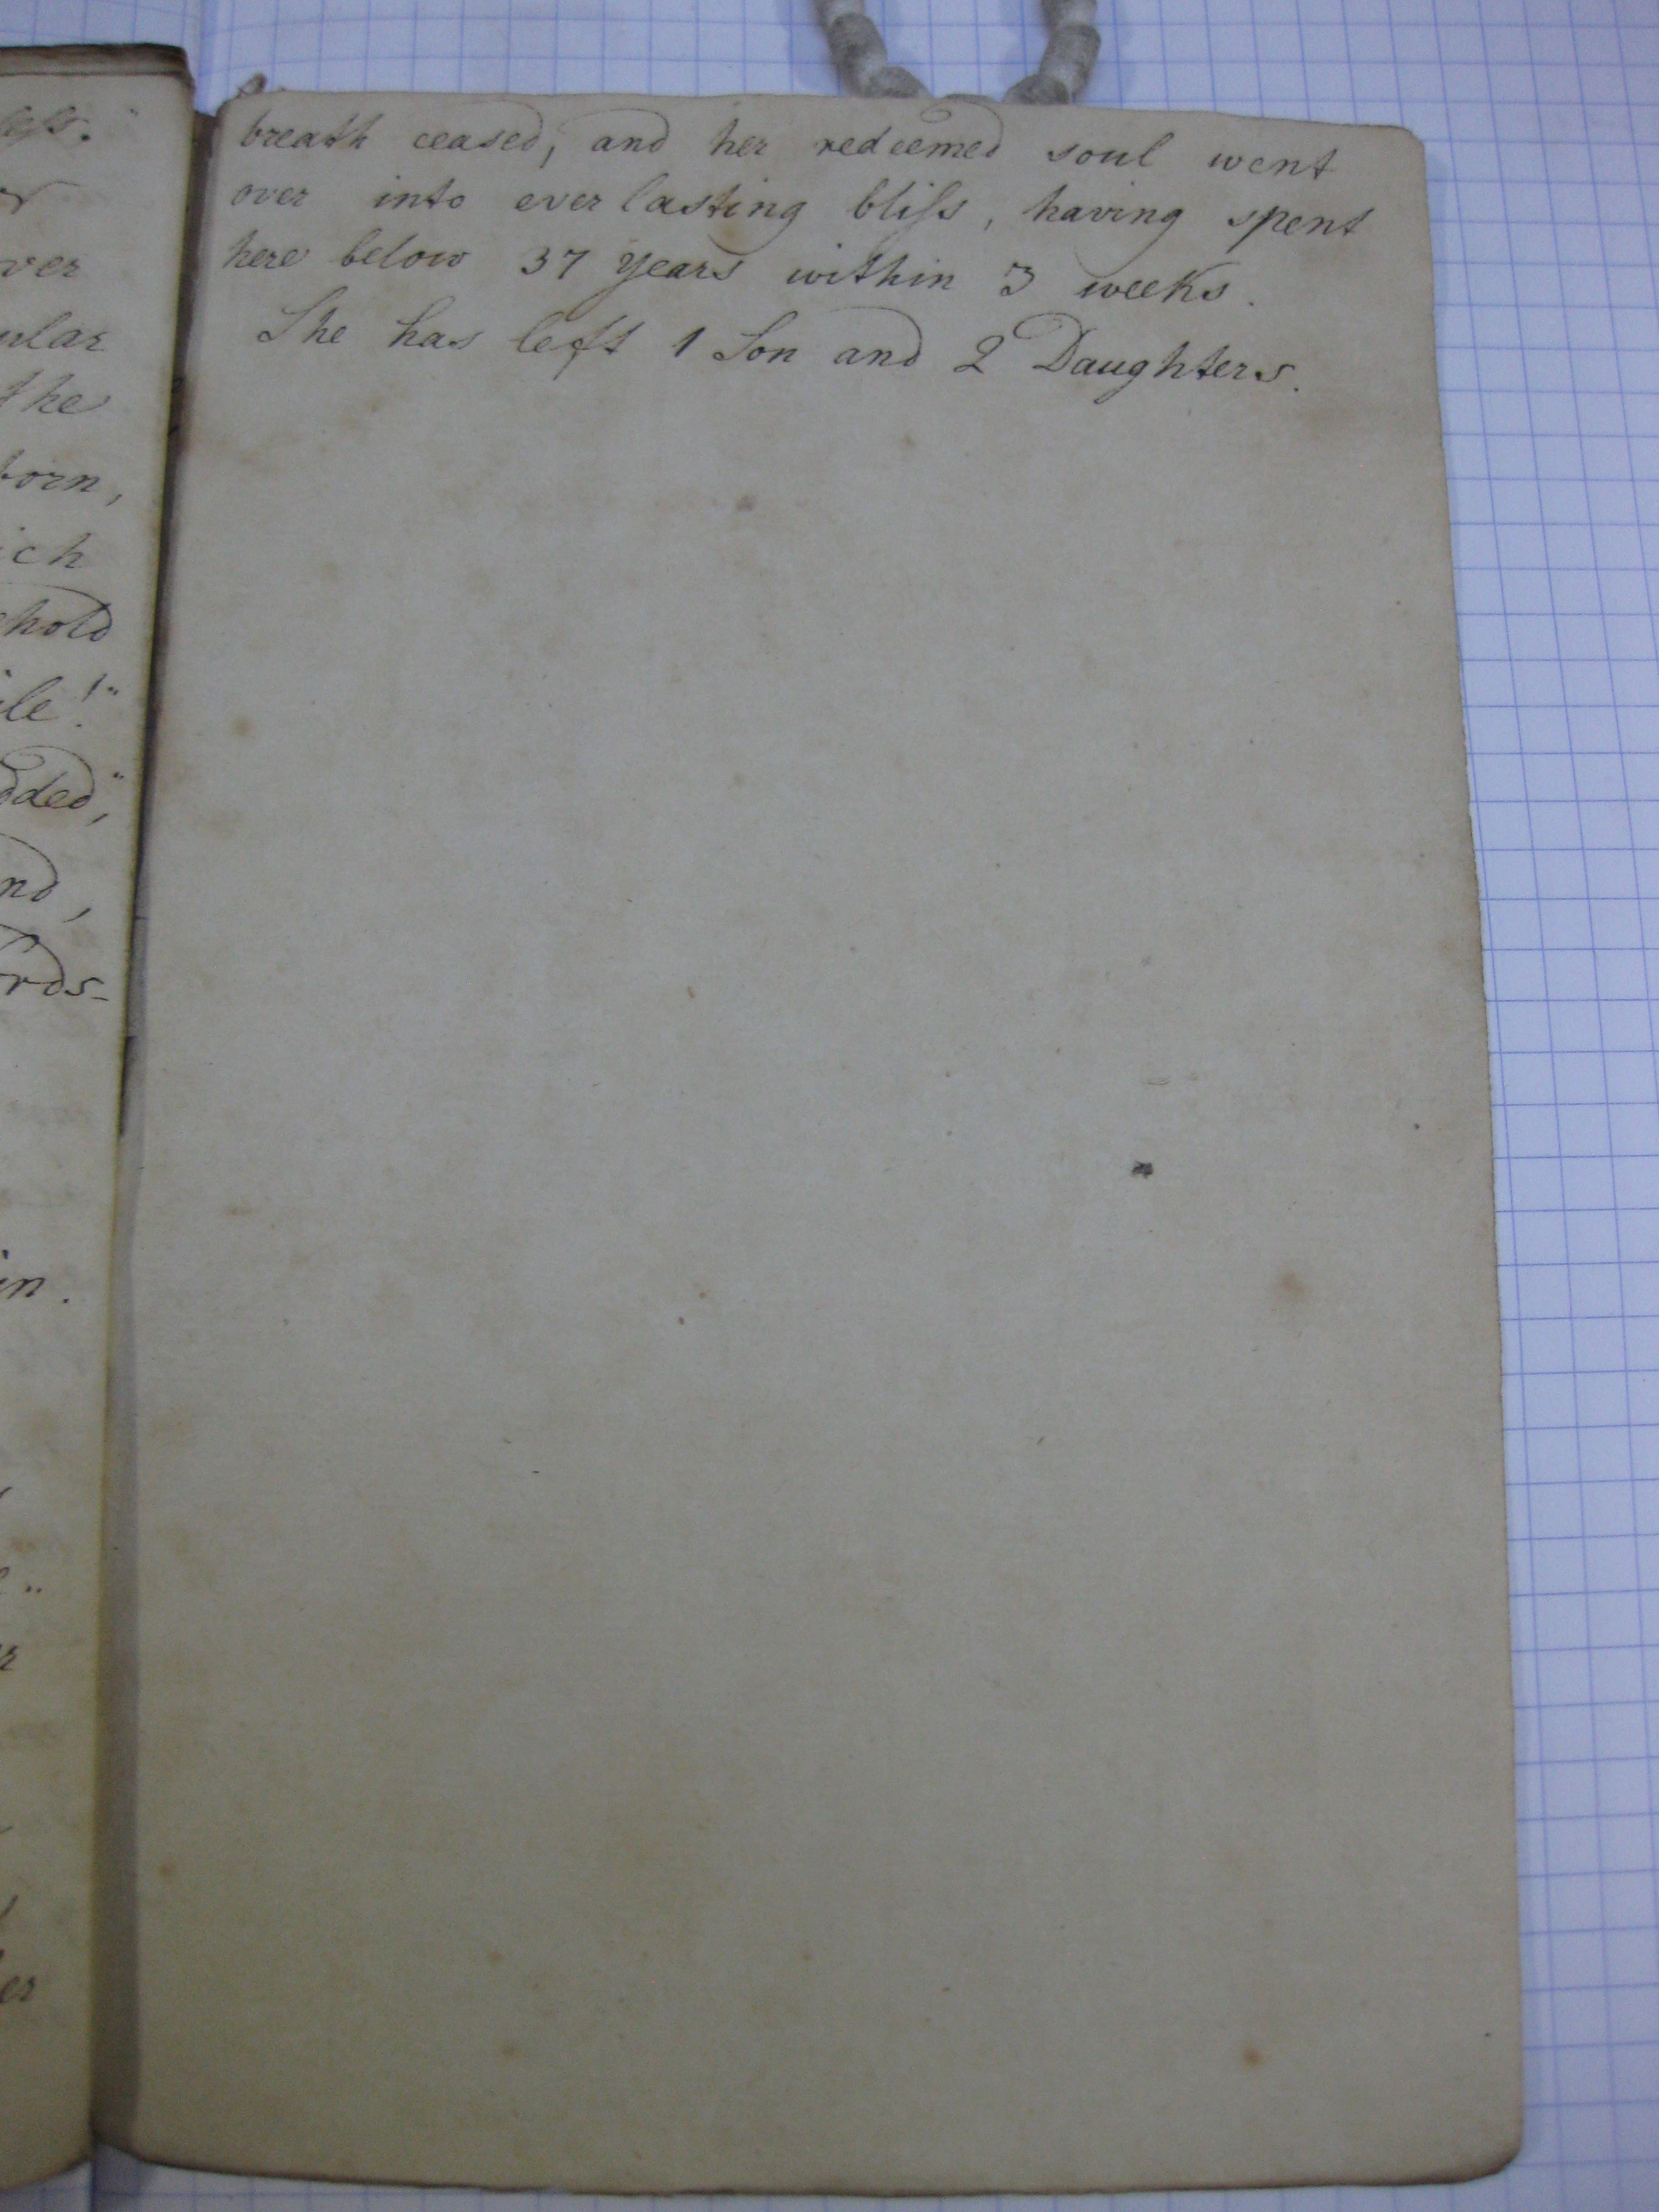 ver
ular
the
born,
ich
hold
ile!"
nd,
rds-
in.
er
breath ceased, and her redeemed soul went
over into ever lasting bliſs, having spent
here below 37 years within 3 weeks.
She has left 1 Son and 2 Daughters.